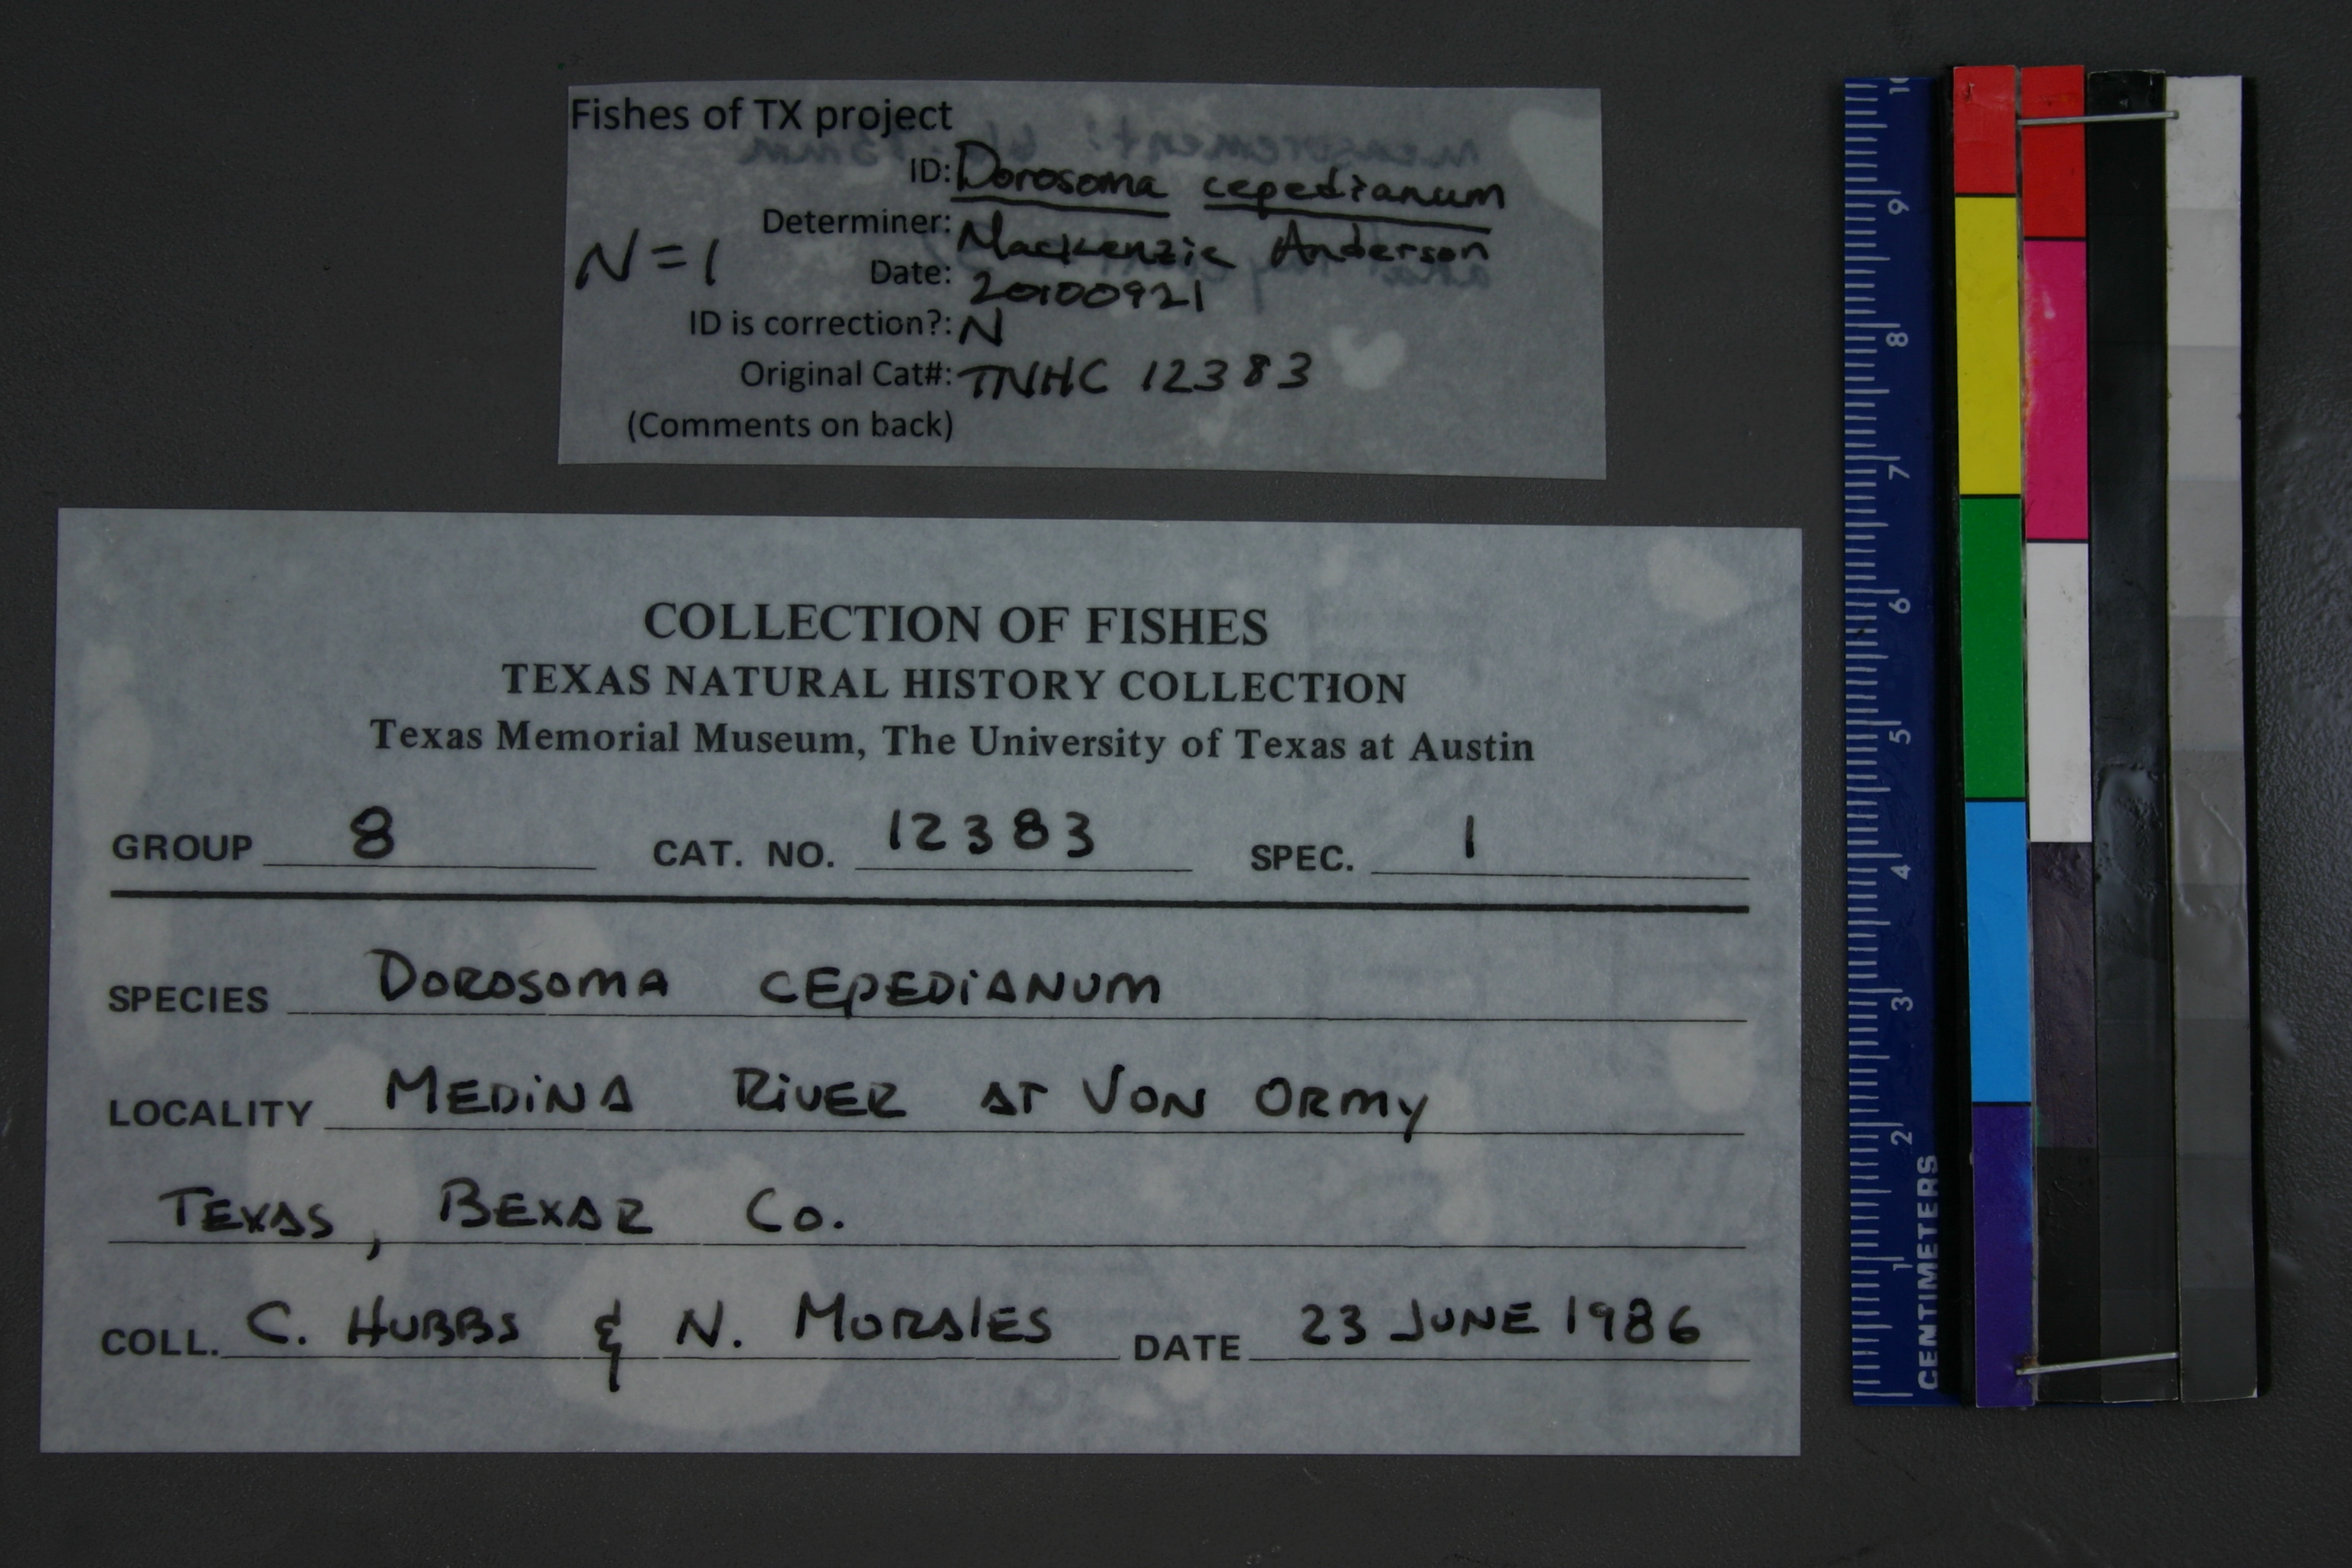 Fishes of TX project
ID: Dorosoma cepedianum
Determiner: Mackenzie Anderson
N=1
Date: 20100921
ID is correction?: N
Original Cat#: TNHC 12383
(Comments on back)
COLLECTION OF FISHES
TEXAS NATURAL HISTORY COLLECTION
Texas Memorial Museum, The University of Texas at Austin
GROUP 8 CAT. NO. 12383 SPEC. 1
SPECIES DOROSOMA CEPEDIANUM
LOCALITY MEDINA RIVER AT VON ORMY
TEXAS, BEXAR CO.
COLL. C. HUBBS & N. MORALES DATE 23 JUNE 1986
10
9
8
7
6
5
4
3
2
1
CENTIMETERS